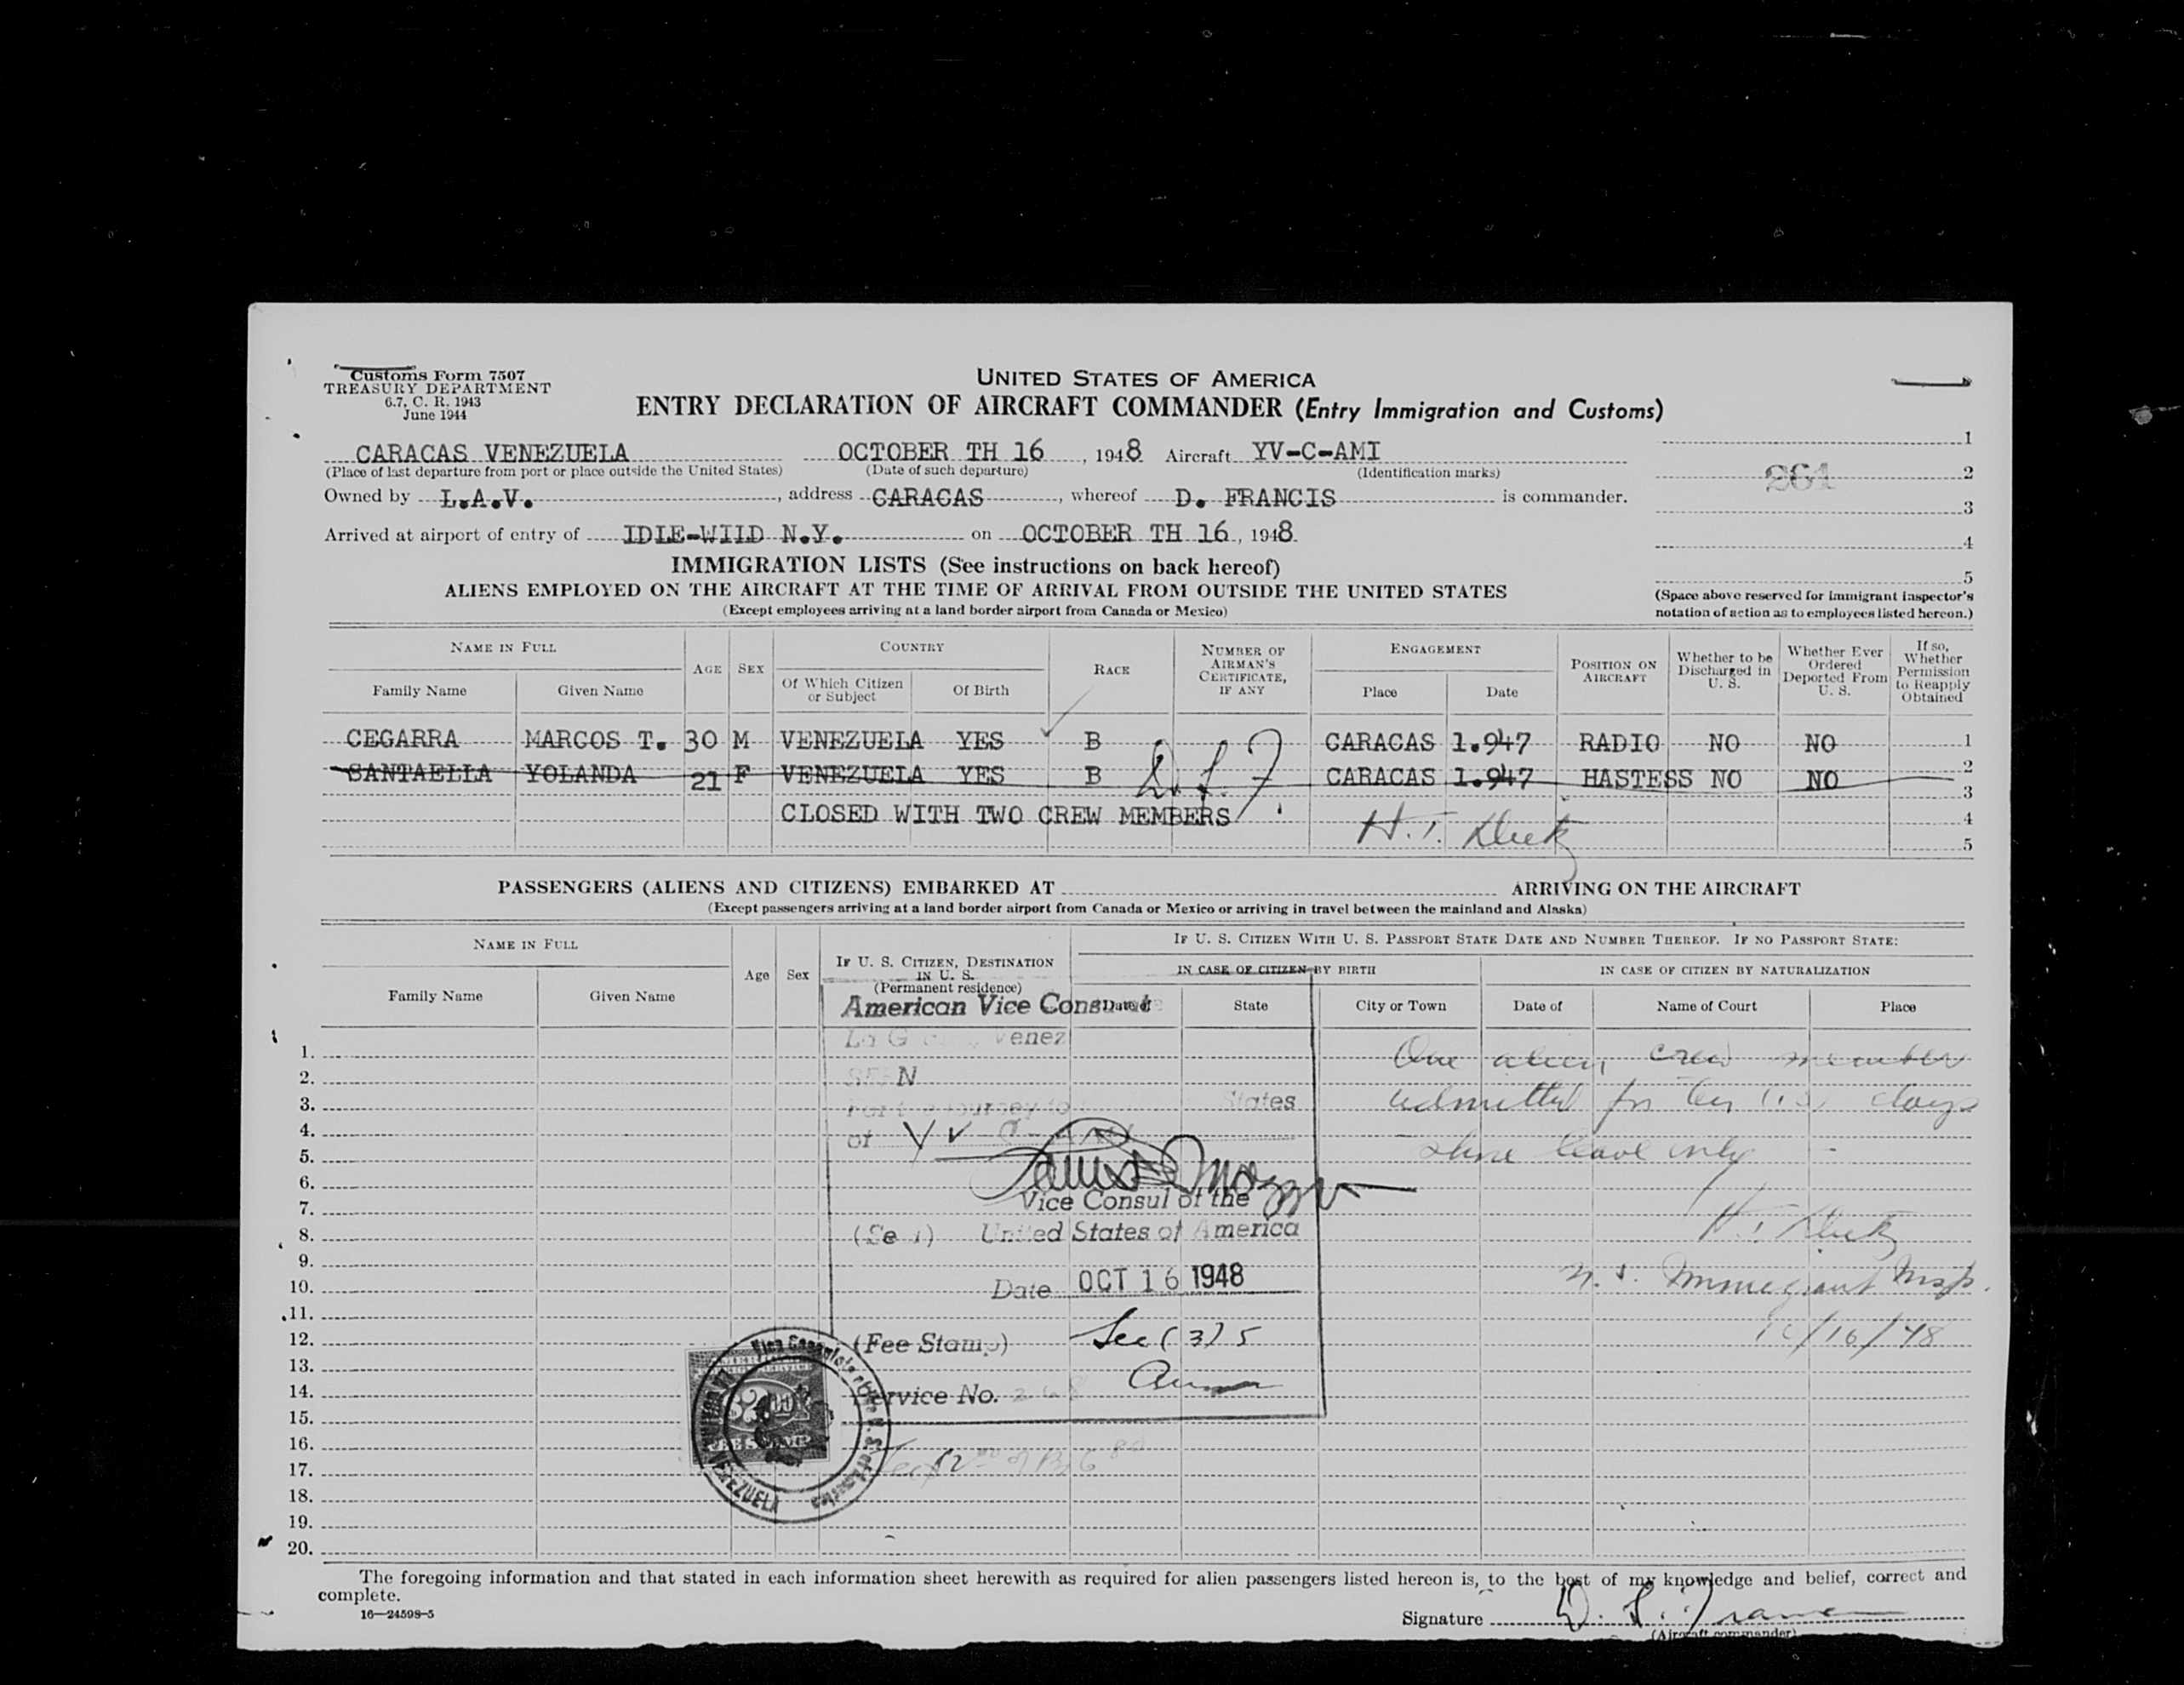 Customs Form 7507
TREASURY DEPARTMENT
6.7, C. R. 1943
June 1944
UNITED STATES OF AMERICA
ENTRY DECLARATION OF AIRCRAFT COMMANDER (Entry Immigration and Customs)
CARACAS VENEZUELA OCTOBER TH 16, 1948 Aircraft YV-C-AMI
(Place of last departure from port or place outside the United States) (Date of such departure) (Identification marks)
Owned by L.A.V., address CARACAS, whereof D. FRANCIS is commander.
Arrived at airport of entry of IDLE-WIID N.Y. on OCTOBER TH 16, 1948.
1
261 2
3
4
5
(Space above reserved for immigrant inspector's
notation of action as to employees listed hereon.)
IMMIGRATION LISTS (See instructions on back hereof)
ALIENS EMPLOYED ON THE AIRCRAFT AT THE TIME OF ARRIVAL FROM OUTSIDE THE UNITED STATES
(Except employees arriving at a land border airport from Canada or Mexico)
NAME IN FULL AGE SEX COUNTRY RACE NUMBER OF AIRMAN'S CERTIFICATE, IF ANY ENGAGEMENT POSITION ON AIRCRAFT Whether to be Discharged in U. S. Whether Ever Ordered Deported From U. S. If so, Whether Permission to Reapply Obtained
Family Name Given Name Of Which Citizen or Subject Of Birth Place Date
CEGARRA MARCOS T. 30 M VENEZUELA YES B CARACAS 1.947 RADIO NO NO 1
SANTAELLA YOLANDA 21 F VENEZUELA YES B CARACAS 1.947 HASTESS NO NO 2
D.S.F. 3
CLOSED WITH TWO CREW MEMBERS H.T. 4
5
PASSENGERS (ALIENS AND CITIZENS) EMBARKED AT ARRIVING ON THE AIRCRAFT
(Except passengers arriving at a land border airport from Canada or Mexico or arriving in travel between the mainland and Alaska)
NAME IN FULL Age Sex IF U. S. CITIZEN, DESTINATION IN U. S. (Permanent residence) IF U. S. CITIZEN WITH U. S. PASSPORT STATE DATE AND NUMBER THEREOF. IF NO PASSPORT STATE:
IN CASE OF CITIZEN BY BIRTH IN CASE OF CITIZEN BY NATURALIZATION
Family Name Given Name State City or Town Date of Name of Court Place
American Vice Consulate
1. One alien crew member
2.
3. States admitted for days
4. of
5. shore leave only
6.
7. Vice Consul of the
8. (Seal) United States of America
9.
10. Date OCT 16 1948 Immigrant Insp.
11.
12. (Fee Stamp) Sec (3) 5 10/16/48
13.
14. Service No.
15.
16.
17.
18.
19.
20.
$2.00
FEE STAMP
VENEZUELA
The foregoing information and that stated in each information sheet herewith as required for alien passengers listed hereon is, to the best of my knowledge and belief, correct and
complete.
16—24598-5
Signature D. S. Francis
(Aircraft commander)